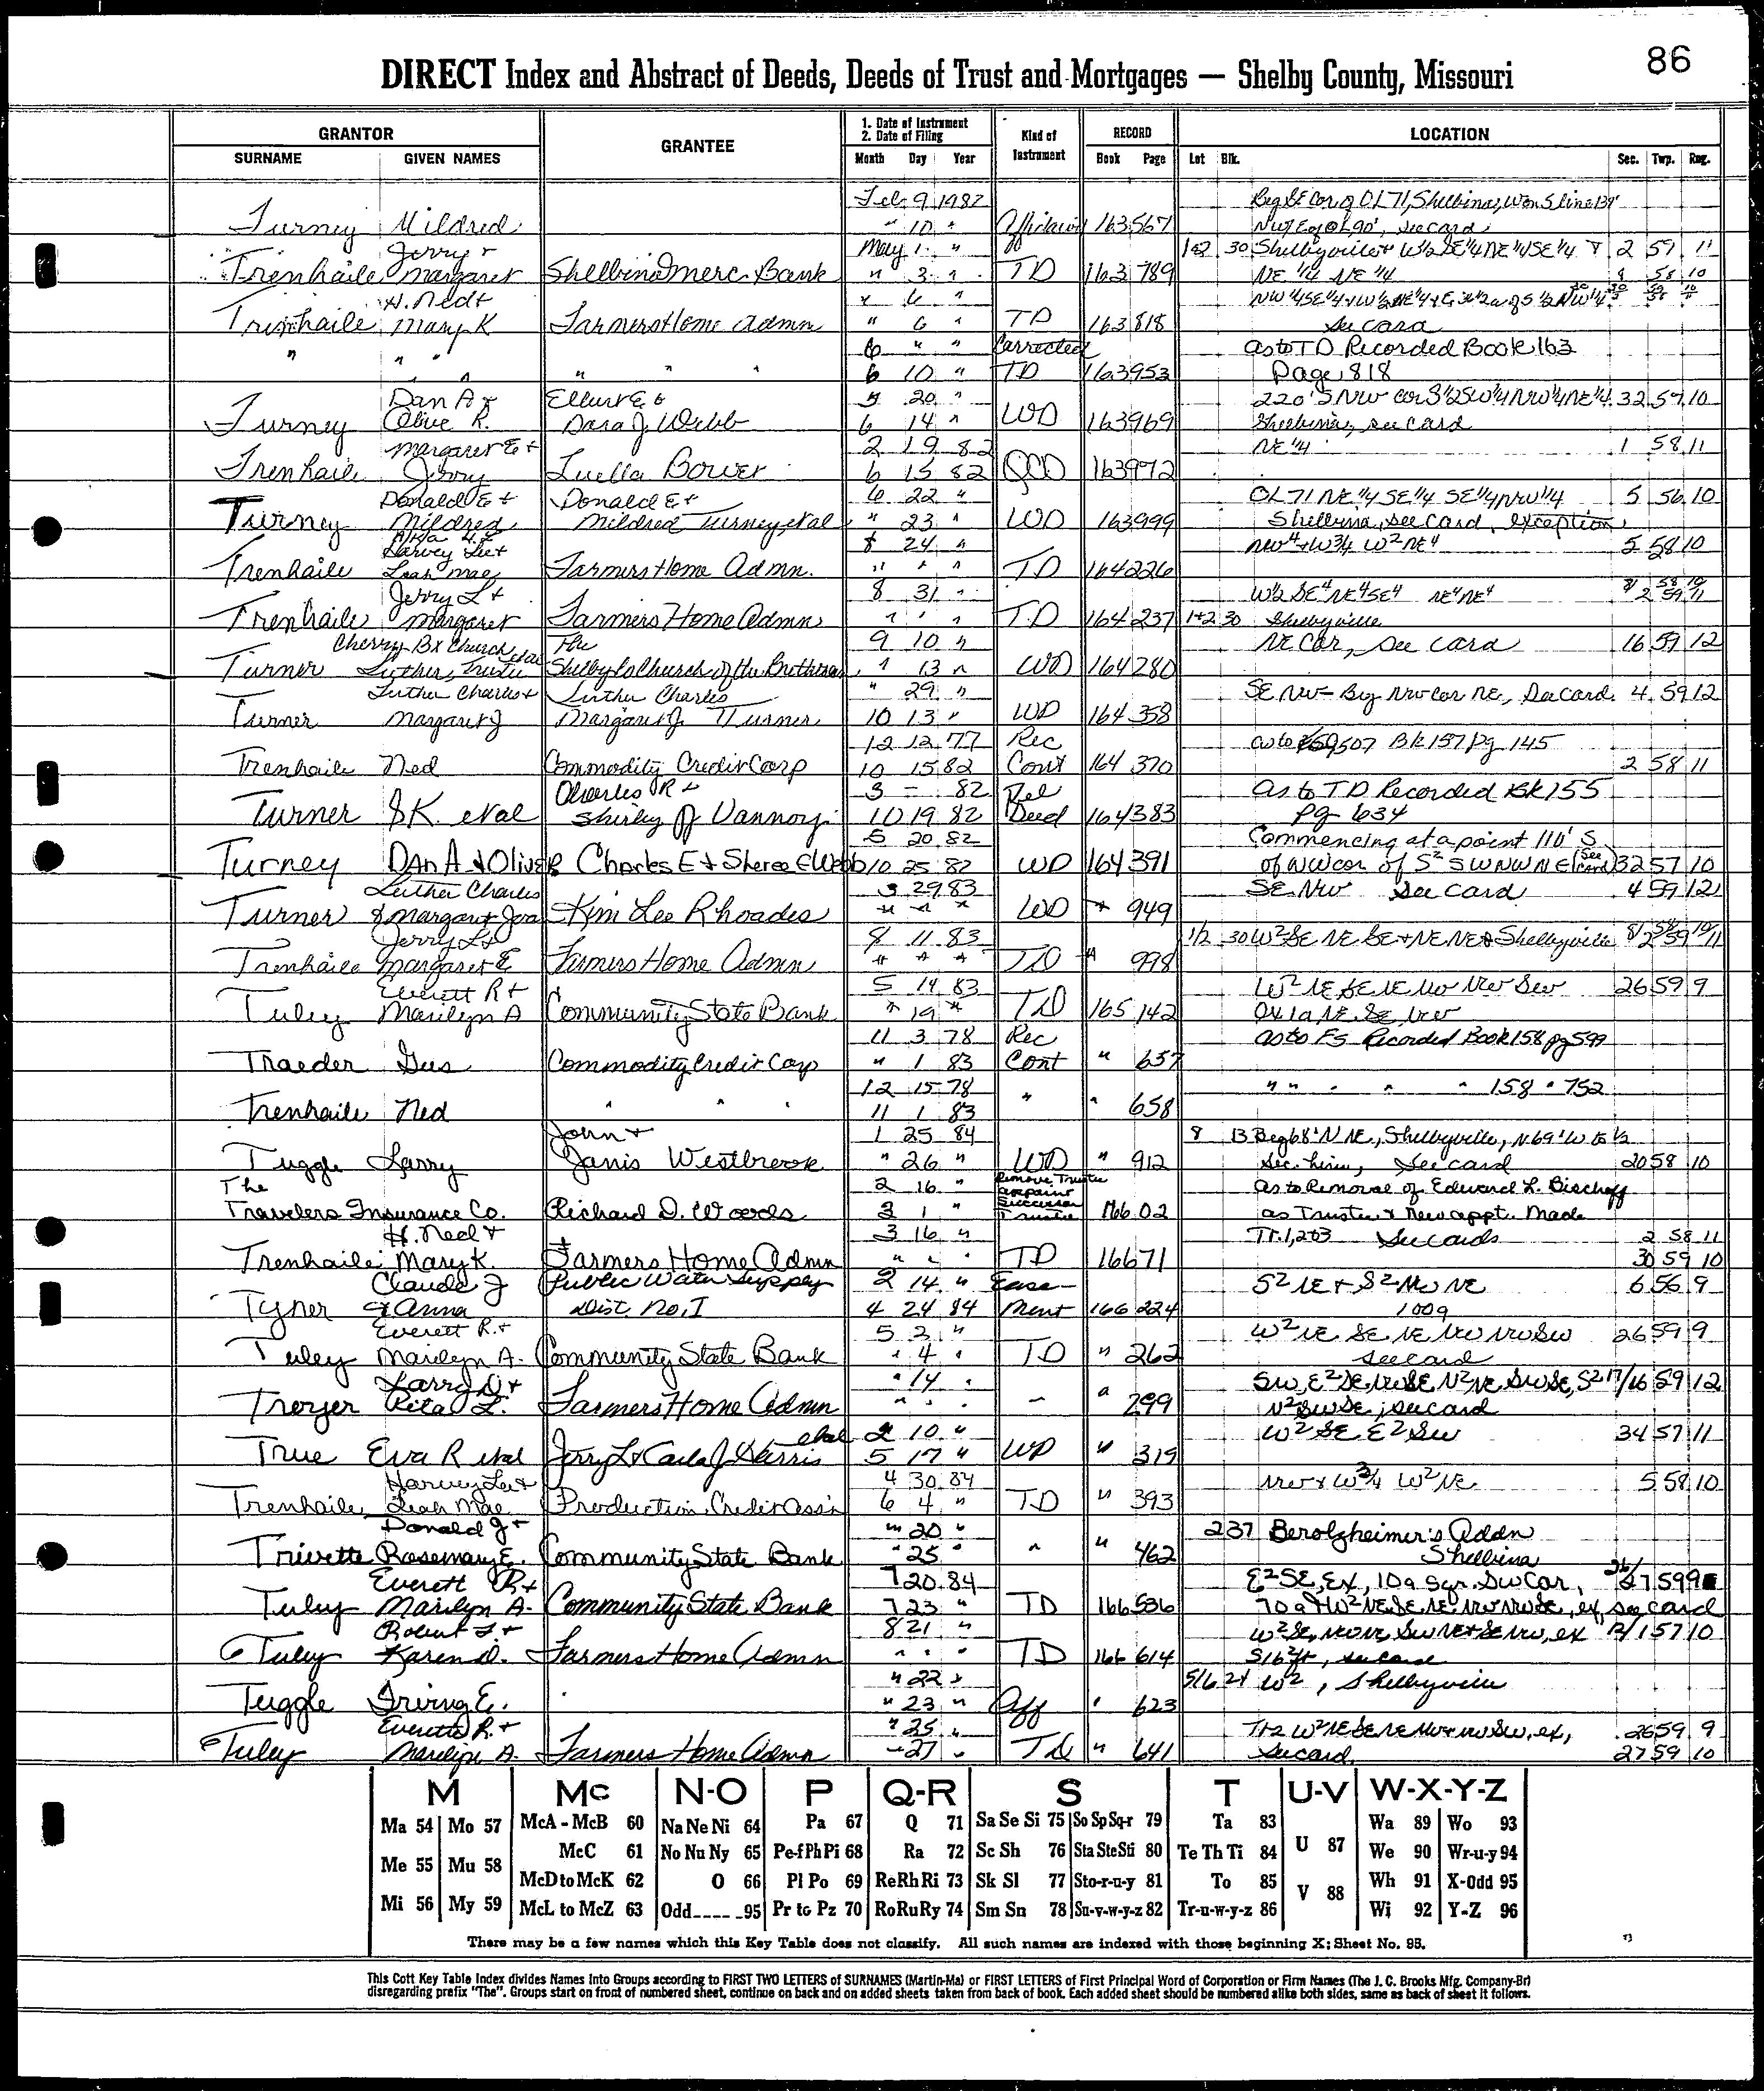 86
DIRECT Index and Abstract of Deeds, Deeds of Trust and Mortgages — Shelby County, Missouri
GRANTOR GRANTEE 1. Date of Instrument 2. Date of Filing Kind of Instrument RECORD LOCATION
SURNAME GIVEN NAMES Month Day Year Book Page Lot Blk. Sec. Twp. Rng.
Feb 9 1982 Beg SE Cor of OL 71, Shelbina, W on S line 134'
Turney Mildred " 10 " 163 567 90', see card
Jerry + May 1 " 1+2 30 Shelbyville + W½ SE¼ NE¼ SE¼ + 2 59 11
Trenhaile Margaret Shelbina Merc Bank " 3 " TD 163 789 NE ¼ NE ¼ 8 58 10
H. Ned + " 6 " NW ¼ SE ¼ + W ½ NE ¼
Trenhaile Mary K Farmers Home Admn " 6 " TD 163 818 see card
" " " 6 " " Corrected as to TD Recorded Book 163
" " " " " 6 10 " TD 163 953 Page 818
Dan A + Ellert E + 5 20 " 220' S NW cor S½ SW¼ NW¼ NE¼ 32 57 10
Turney Olive R. Dara J Webb 6 14 " WD 163 969 Shelbina, see card
Margaret E + 2 19 82 NE ¼ 1 58 11
Trenhaile Jerry Luella Bower 6 15 82 QCD 163 972
Donald E + Donald E + 6 22 " OL 71 NE ¼ SE ¼ SE ¼ NW ¼ 5 56 10
Turney Mildred Mildred Turney, etal " 23 " WD 163 999 Shelbina, see card, exception
Harvey Lee + 8 24 " NW4 + W¾ W2 NE4 5 58 10
Trenhaile Leah Mae Farmers Home Admn. " " " TD 164 226
Jerry L + 8 31 " W½ SE4 NE4 SE4 NE4 NE4
Trenhaile Margaret Farmers Home Admn " " " TD 164 237 1+2 30 Shelbyville
Cherry Bx Church etal The 9 10 " NE Cor, see card 16 59 12
Turner Luther, Trustee Shelby Co Church of the Brethren " 13 " WD 164 280
Luther Charles + Luther Charles " 29 " SE NW - Beg NW cor NE, See card. 4 59 12
Turner Margaret J Margaret J Turner 10 13 " WD 164 358
12 12 77 Rec as to Bk 157 pg 145
Trenhaile Ned Commodity Credit Corp 10 15 82 Cont 164 370 2 58 11
Charles R + 3 - 82 Rel As to TD Recorded Bk 155
Turner S K. etal Shirley J Vannoy 10 19 82 Deed 164 383 pg 634
5 20 82 Commencing at a point 110' S
Turney Dan A + Olive R Charles E + Sheree E Webb 10 25 82 WD 164 391 of NW cor of S2 SW NW NE (See card) 32 57 10
Luther Charles 3 29 83 SE NW See card 4 59 12
Turner & Margaret Kim Lee Rhoades " " " WD " 949
Jerry L + 8 11 83 1/2 30 W2 SE NE SE + NE NE + Shelbyville
Trenhaile Margaret E Farmers Home Admn " " " TD " 998
Everett R + 5 14 83 W2 NE SE NE NW NW SW 26 59 9
Tuley Marilyn A Community State Bank " 19 " TD 165 142 Ex 1a NE SE NW
11 3 78 Rec as to FS Recorded Book 158 pg 599
Traeder Gus Commodity Credit Corp " 1 83 Cont " 657
12 15 78 " " " " " 158 " 752
Trenhaile Ned " " " 11 1 83 " " 658
John + 1 25 84 8 13 Beg 68' N NE, Shelbyville, N 69' W to ½
Tuggle Larry Janis Westbrook " 26 " WD " 912 see card 20 58 10
The 2 16 " Remove Trustee as to Removal of Edward L. Bischoff
Travelers Insurance Co. Richard D. Woods 3 1 " Successor Trustee 166 02 as Trustee & New appt. Made
H. Ned + 3 16 " Tr. 1, 2 + 3 See cards 2 58 11
Trenhaile Mary K. Farmers Home Admn " " " TD 166 71 30 59 10
Claude J Public Water Supply 2 14 " Ease- S2 NE + S2 NW NE 6 56 9
Tyner & Anna Dist No. I 4 24 84 ment 166 224 100a
Everett R. + 5 2 " W2 NE SE NE NW NW SW 26 59 9
Tuley Marilyn A. Community State Bank " 4 " TD " 262 see card
Larry D + " 14 " SW, E2 SE, NW SE, N2 NE SW SE, S2 17/16 59 12
Troyer Rita L. Farmers Home Admn " " " — " 299 N2 SW SE, see card
etal 2 10 " W2 SE E2 SW 34 57 11
True Eva R etal Jerry L + Carla J Harris 5 17 " WD " 319
Harvey Lee + 4 30 84 NW + W¾ W2 NE 5 58 10
Trenhaile Leah Mae Production Credit Ass'n 6 4 " TD " 393
Donald J + " 20 " 237 Berolzheimer's Addn
Trivette Rosemary E. Community State Bank " 25 " " " 462 Shelbina
Everett R + 7 20 84 E2 SE, Ex, 10a Sqr. SW Cor, 26/27 59 9
Tuley Marilyn A. Community State Bank 7 23 " TD 166 536 70a + W2 NE SE NE NW NW SE, ex, see card
Robert + 8 21 " W2 SE, NW NE, SW NE + SE NW, ex 12/1 57 10
Tuley Karen D. Farmers Home Admn " " " TD 166 614 see card
" 22 " 5/6 24 W2, Shelbyville
Tuggle Irving E. " 23 " Aff " 623
Everett R. + " 25 " T1+2 W2 NE SE NE NW + NW SW, ex, 26 59 9
Tuley Marilyn A. Farmers Home Admn " 27 " TD " 641 See card. 27 59 10
M Mc N-O P Q-R S T U-V W-X-Y-Z
Ma 54 Mo 57 McA - McB 60 Na Ne Ni 64 Pa 67 Q 71 Sa Se Si 75 So Sp Sq-r 79 Ta 83 U 87 Wa 89 Wo 93
Me 55 Mu 58 McC 61 No Nu Ny 65 Pe-f Ph Pi 68 Ra 72 Sc Sh 76 Sta Ste Sti 80 Te Th Ti 84 We 90 Wr-u-y 94
McD to McK 62 O 66 Pl Po 69 Re Rh Ri 73 Sk Sl 77 Sto-r-u-y 81 To 85 V 88 Wh 91 X-Odd 95
Mi 56 My 59 McL to McZ 63 Odd____ 95 Pr to Pz 70 Ro Ru Ry 74 Sm Sn 78 Su-v-w-y-z 82 Tr-u-w-y-z 86 Wi 92 Y-Z 96
There may be a few names which this Key Table does not classify. All such names are indexed with those beginning X; Sheet No. 95.
This Cott Key Table Index divides Names into Groups according to FIRST TWO LETTERS of SURNAMES (Martin-Ma) or FIRST LETTERS of First Principal Word of Corporation or Firm Names (The J. C. Brooks Mfg. Company-Br)
disregarding prefix "The". Groups start on front of numbered sheet, continue on back and on added sheets taken from back of book. Each added sheet should be numbered alike both sides, same as back of sheet it follows.